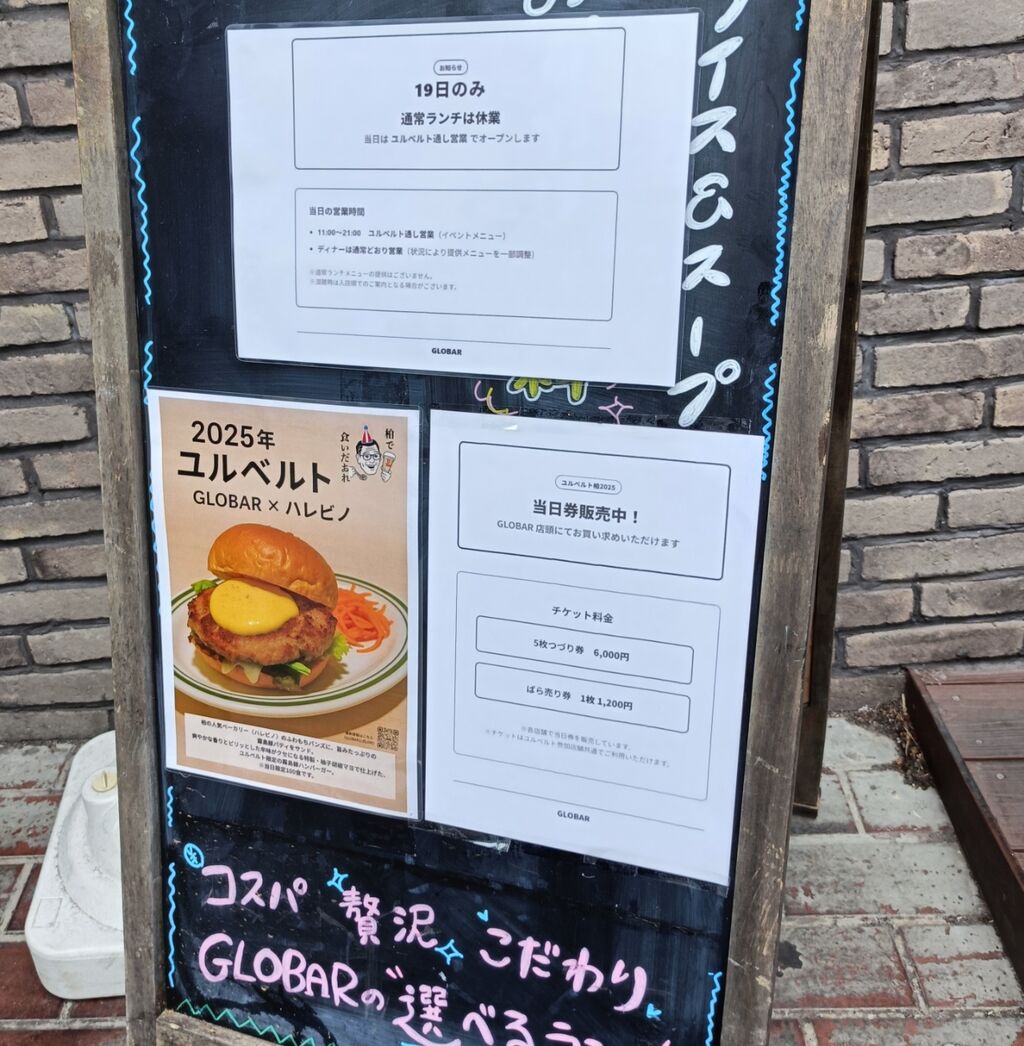 イス&スープ
お知らせ
19日のみ
通常ランチは休業
当日は ユルベルト通し営業 でオープンします
当日の営業時間
• 11:00〜21:00 ユルベルト通し営業（イベントメニュー）
• ディナーは通常どおり営業（状況により提供メニューを一部調整）
※通常ランチメニューの提供はございません。
※混雑時は入店順でのご案内となる場合がございます。
GLOBAR
2025年
ユルベルト
GLOBAR × ハレビノ
柏で
食いだおれ
柏の人気ベーカリー（ハレビノ）のふわもちバンズに、旨みたっぷりの
霧島豚パティをサンド。
爽やかな香りとピリッとした辛味がクセになる特製・柚子胡椒マヨで仕上げた、
ユルベルト限定の霧島豚ハンバーガー。
※当日限定100食です。
ユルベルト柏2025
当日券販売中！
GLOBAR 店頭にてお買い求めいただけます
チケット料金
5枚つづり券 6,000円
ばら売り券 1枚 1,200円
※各店舗で当日券を販売しています。
※チケットはユルベルト参加店舗共通でご利用いただけます。
GLOBAR
コスパ 贅沢 こだわり
GLOBARの選べるラン